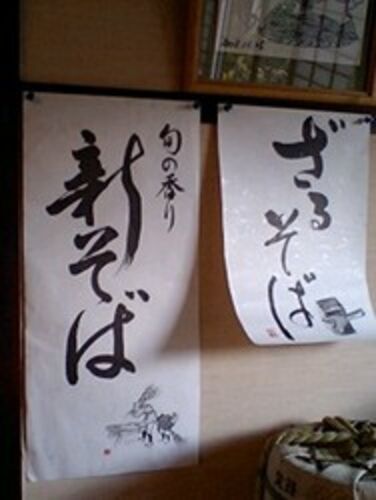 旬の香り
新そば
ざるそば